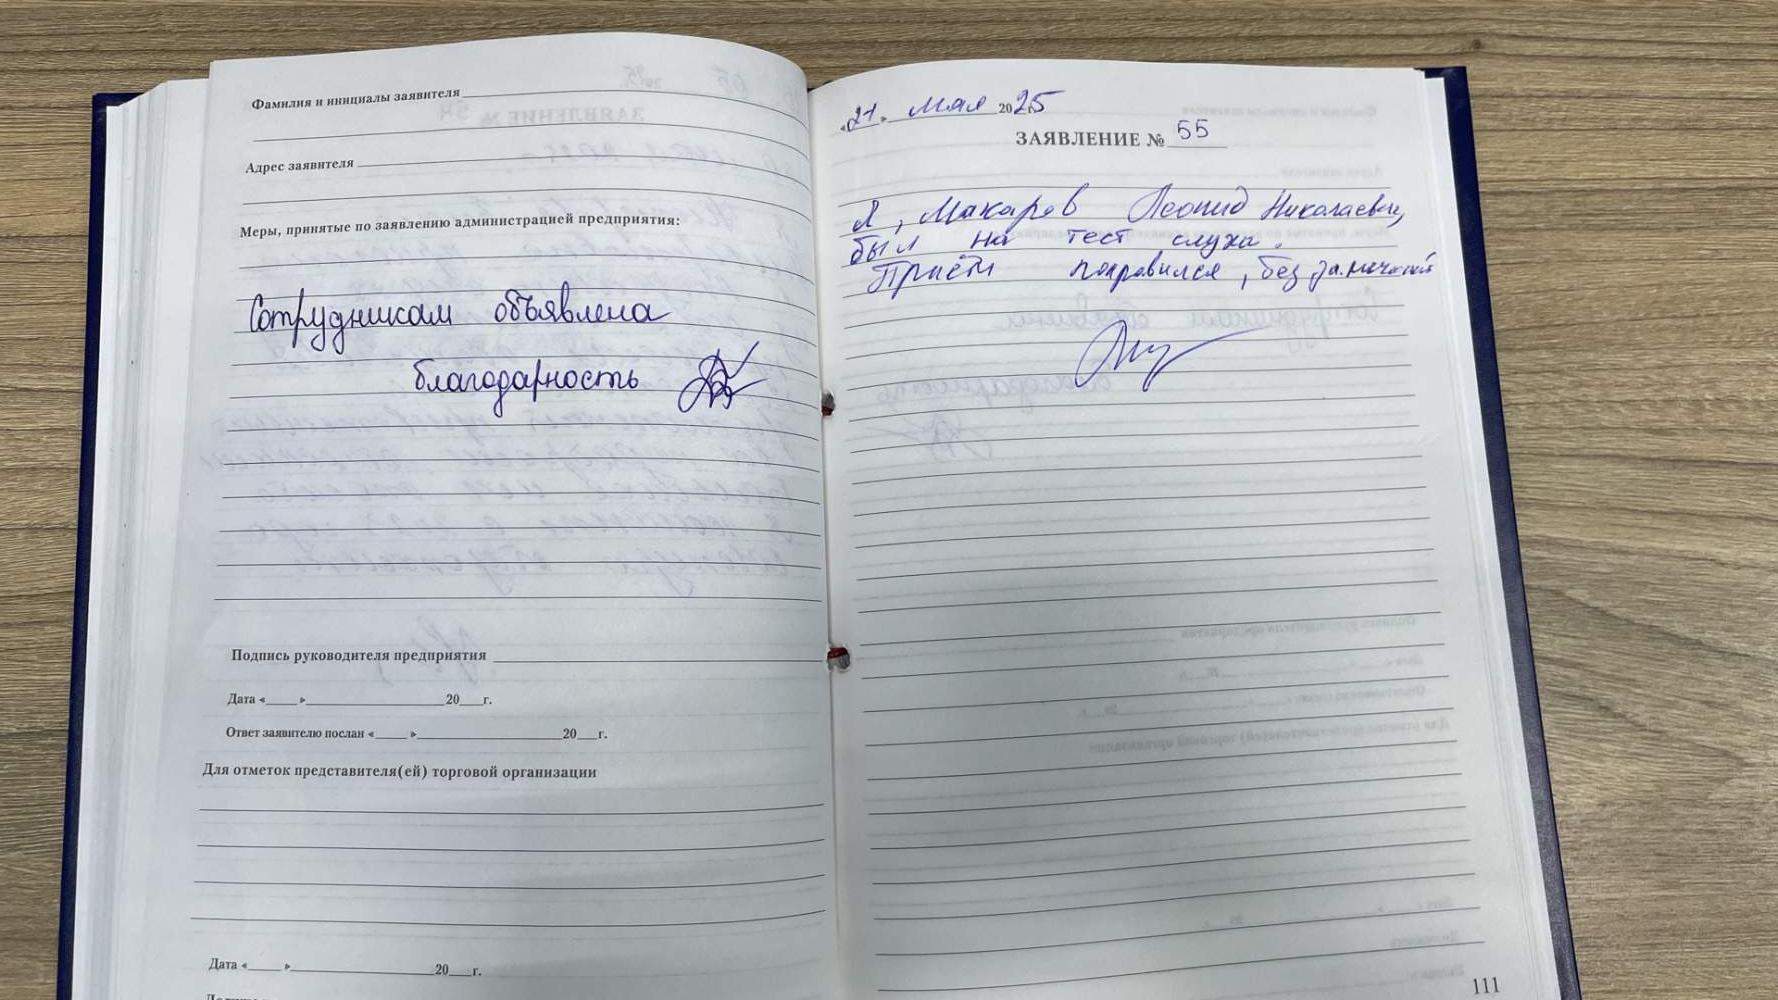 Фамилия и инициалы заявителя
Адрес заявителя
Меры, принятые по заявлению администрацией предприятия:
Сотрудникам объявлена
благодарность
Подпись руководителя предприятия
Дата «____» ____ 20___г.
Ответ заявителю послан «____» ____ 20___г.
Для отметок представителя(ей) торговой организации
Дата «____» ____ 20___г.
«21» Мая 2025
ЗАЯВЛЕНИЕ № 55
Я, Макаров Леонид Николаевич,
был на тест слуха.
Приём понравился, без замечаний
111